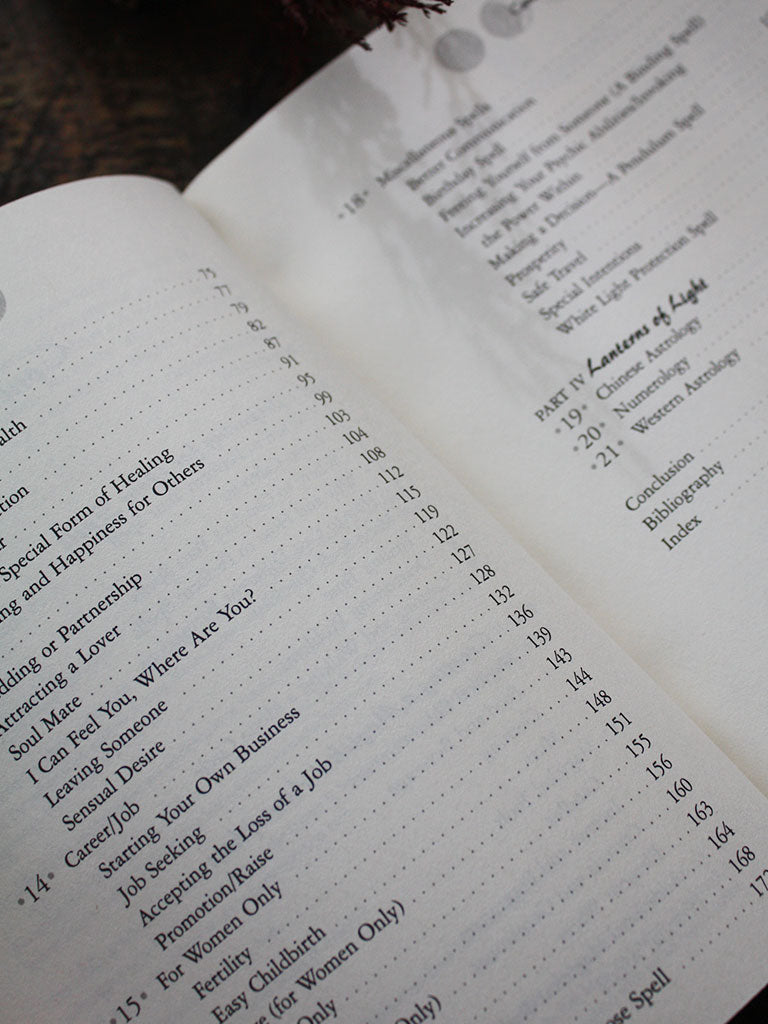 75
77
alth 79
82
tion 87
r 91
Special Form of Healing 95
ng and Happiness for Others 99
103
dding or Partnership 104
Attracting a Lover 108
Soul Mate 112
I Can Feel You, Where Are You? 115
Leaving Someone 119
Sensual Desire 122
•14• Career/Job 127
Starting Your Own Business 128
Job Seeking 132
Accepting the Loss of a Job 136
Promotion/Raise 139
•15• For Women Only 143
Fertility 144
Easy Childbirth 148
e (for Women Only) 151
Only 155
156
160
163
164
168
ose Spell
•18• Miscellaneous Spells
Better Communication
Birthday Spell
Freeing Yourself from Someone (A Binding Spell)
Increasing Your Psychic Abilities/Invoking
the Power Within
Making a Decision—A Pendulum Spell
Prosperity
Safe Travel
Special Intentions
White Light Protection Spell
PART IV Lanterns of Light
•19• Chinese Astrology
•20• Numerology
•21• Western Astrology
Conclusion
Bibliography
Index